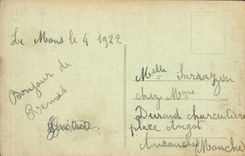 Le Mans le 4 1922
Bonjour de
Rennes
Melle Sarrazin
chez Mme
Durand charcutière
place Angot
Avranches Manche